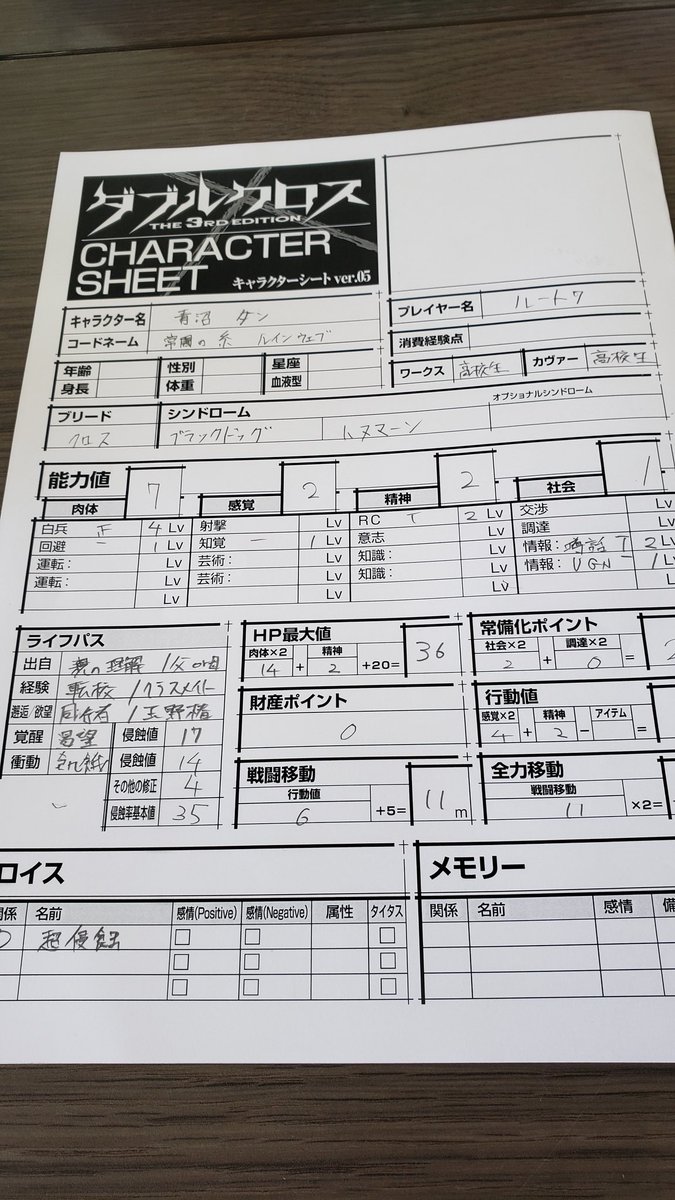 ダブルクロス
THE 3RD EDITION
CHARACTER
SHEET キャラクターシート ver.05
キャラクター名 青沼 ダン
コードネーム 常闇の糸 ルインウェブ
プレイヤー名 ルート7
消費経験点
年齢 性別 星座
身長 体重 血液型
ワークス 高校生 カヴァー 高校生
ブリード シンドローム オプショナルシンドローム
クロス ブラックドッグ ハヌマーン
能力値
肉体 7 感覚 2 精神 2 社会 1
白兵 正 4 Lv 射撃 Lv RC T 2 Lv 交渉 Lv
回避 1 Lv 知覚 一 1 Lv 意志 Lv 調達 Lv
運転: Lv 芸術: Lv 知識: Lv 情報:噂話 T 2 Lv
運転: Lv 芸術: Lv 知識: Lv 情報:UGN 1 Lv
Lv Lv Lv Lv
ライフパス
出自 親の理解 /父
経験 転校 /クラスメイト
邂逅/欲望 同行者 /玉野椿
覚醒 渇望 侵蝕値 17
衝動 飢餓 侵蝕値 14
その他の修正 4
侵蝕率基本値 35
HP最大値
肉体×2 精神
14 + 2 +20= 36
常備化ポイント
社会×2 調達×2
2 + 0 = 2
財産ポイント
0
行動値
感覚×2 精神 アイテム
4 + 2 − =
戦闘移動
行動値
6 +5= 11 m
全力移動
戦闘移動
11 ×2=
ロイス
関係 名前 感情(Positive) 感情(Negative) 属性 タイタス
D 超侵蝕
メモリー
関係 名前 感情